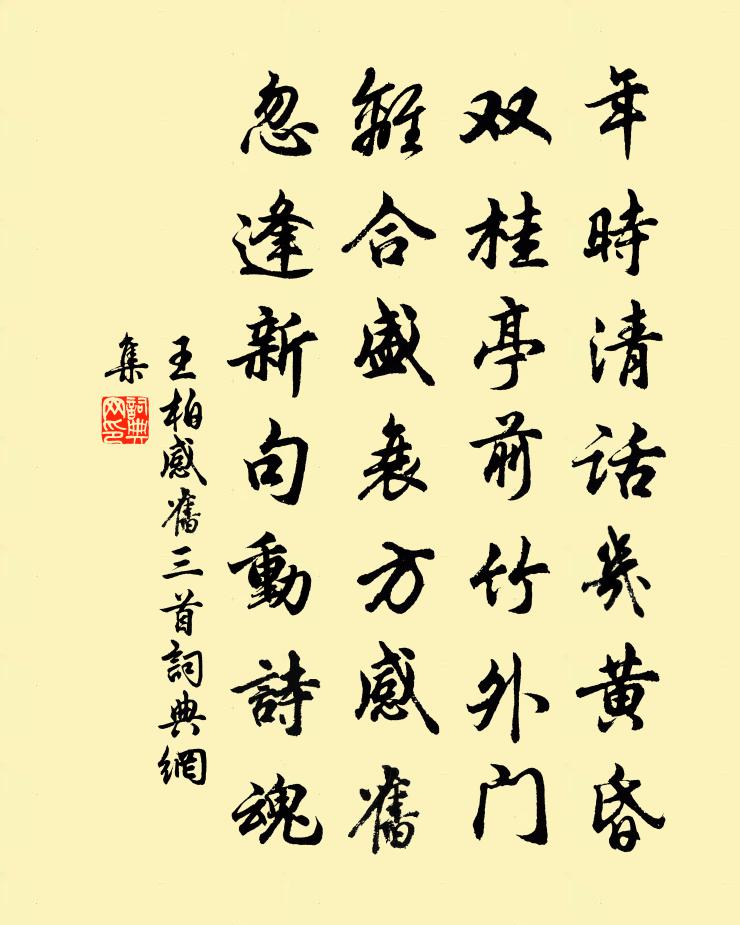 年時清話幾黄昏
双桂亭前竹外門
離合盛衰方感舊
忽逢新句動詩魂
王柏感舊三首詞典網
集
詞典
网印